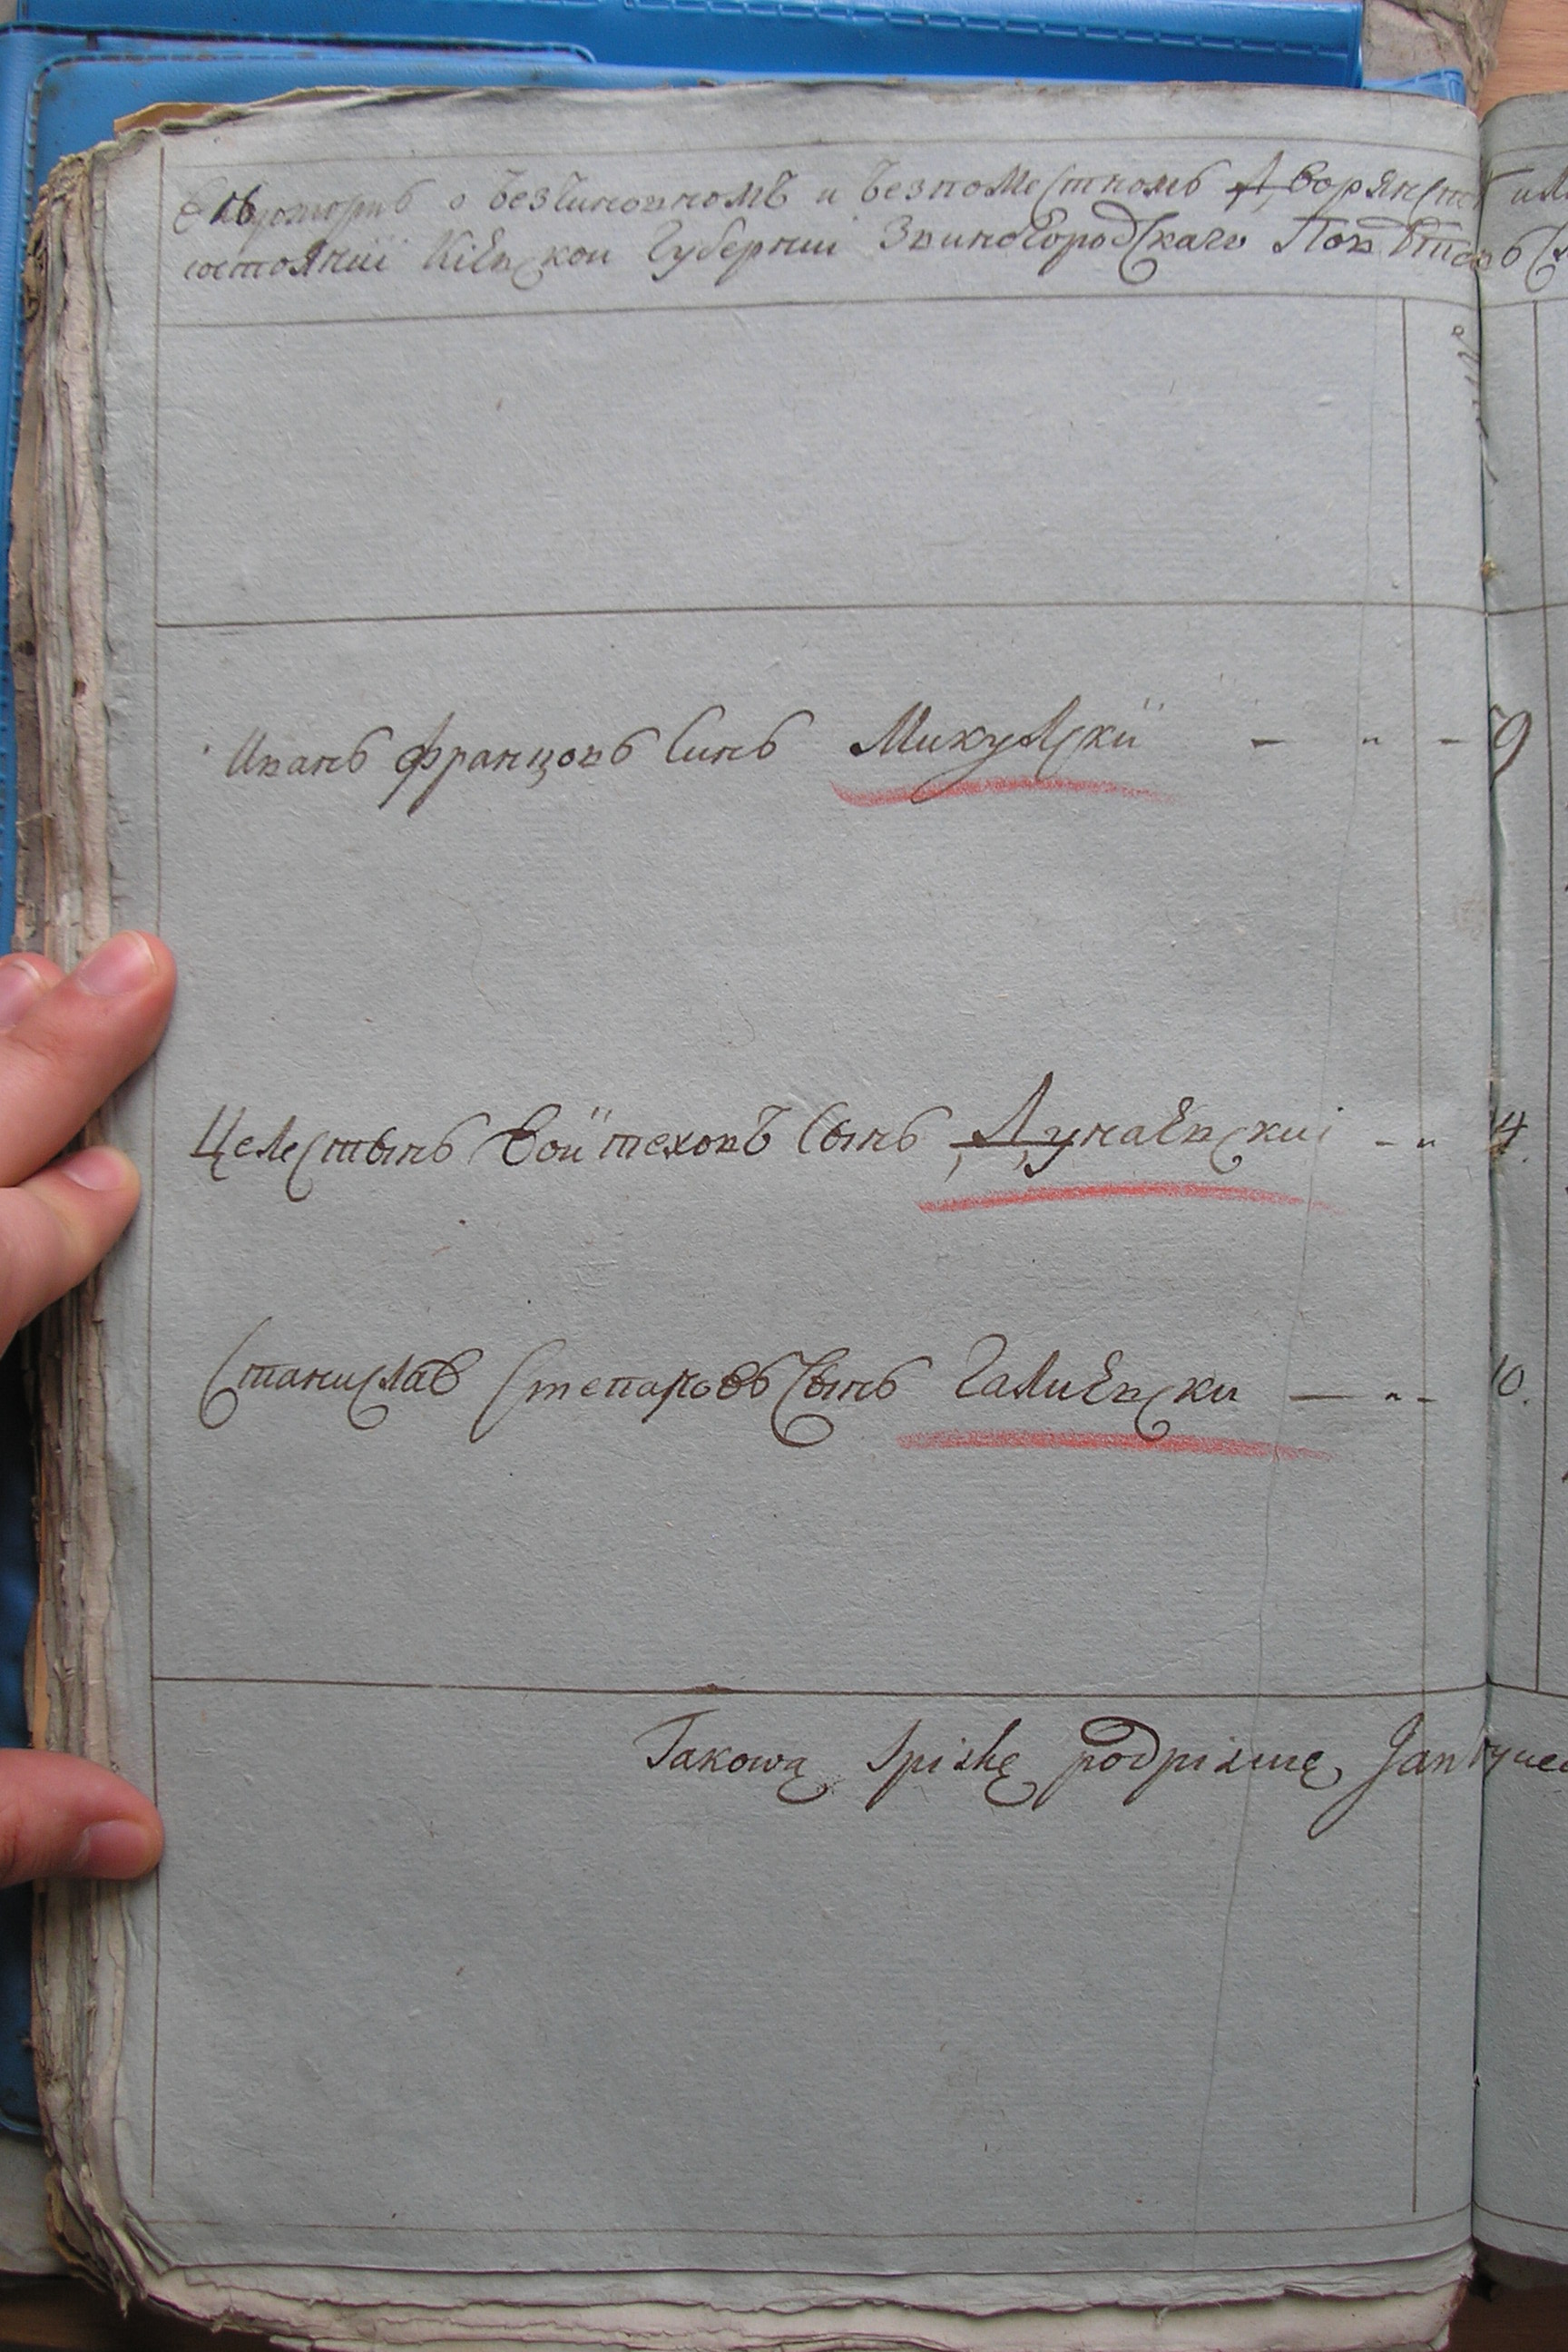 о безчиновномъ и безпоместномъ Дворянств
состоянии Кіевской Губернии Звиногородскаго Поветовъ
Иванъ Францовъ Синъ Микулскй - " - 9
Целестынъ Войтеховъ Сынъ Дунаевский - " 14.
Станислав Степановъ Сынъ Галиевски — " - 10.
Takową Spiskę podpisuię Jan